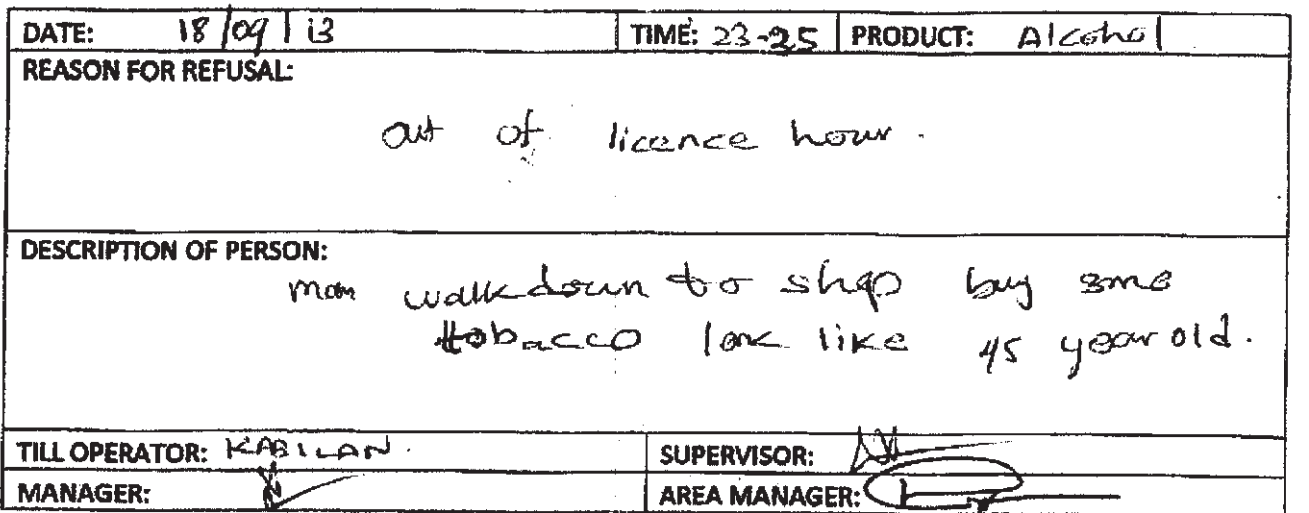 DATE: 18/09/13 TIME: 23-25 PRODUCT: Alcohol
REASON FOR REFUSAL:
out of licence hour.
DESCRIPTION OF PERSON:
man walkdown to shop buy sme
tobacco look like 45 year old.
TILL OPERATOR: KABILAN. SUPERVISOR:
MANAGER: AREA MANAGER: